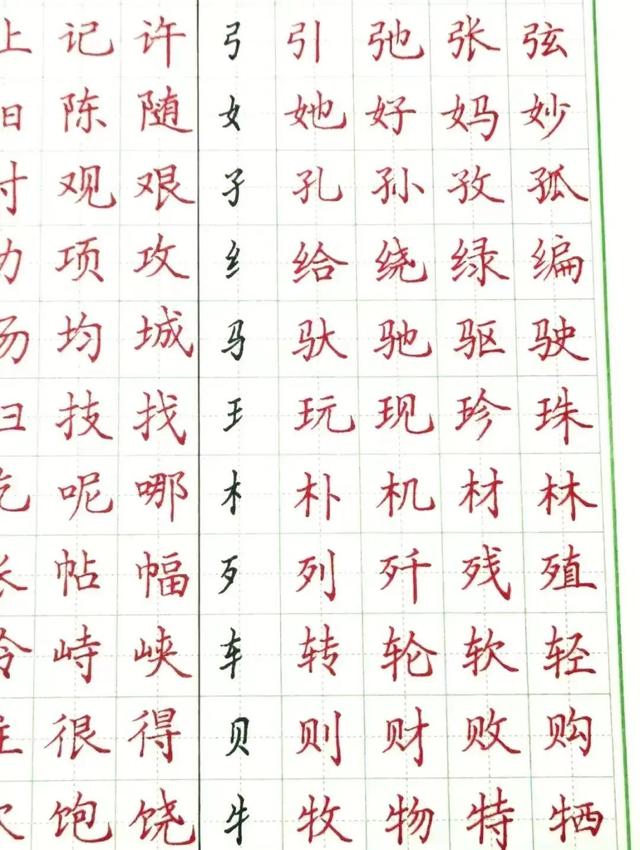 记 许 弓 引 弛 张 弦
陈 随 女 她 好 妈 妙
观 艰 子 孔 孙 孜 孤
项 攻 纟 给 绕 绿 编
均 城 马 驮 驰 驱 驶
技 找 王 玩 现 珍 珠
呢 哪 木 朴 机 材 林
帖 幅 歹 列 歼 残 殖
峙 峡 车 转 轮 软 轻
很 得 贝 则 财 败 购
饱 饶 牛 牧 物 特 牺